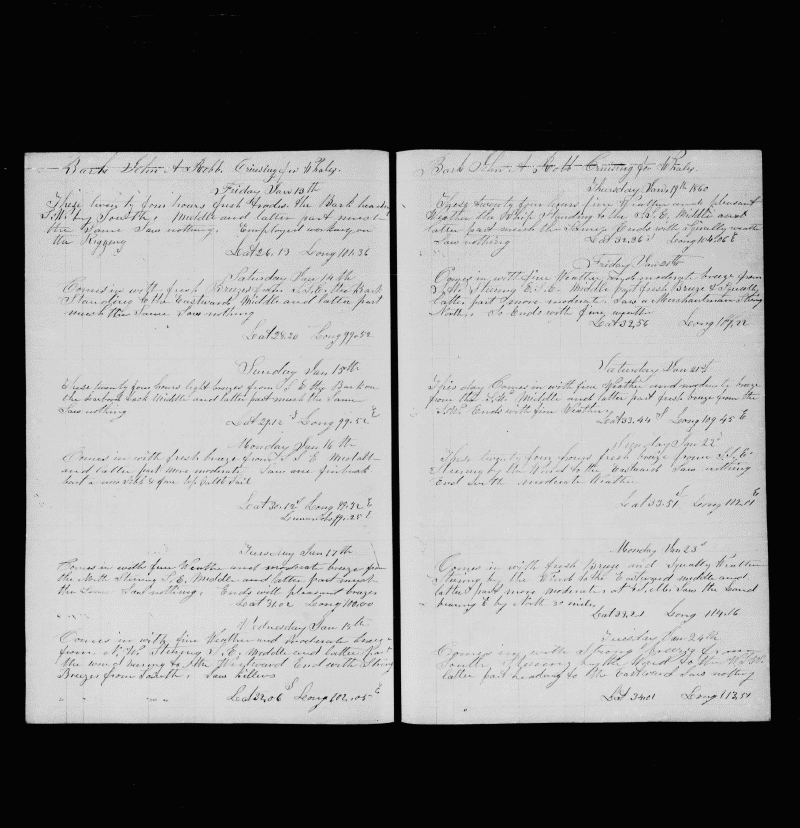 Bark John A Robb. Cruising for Whales.
Friday Jan 13th
These twenty four hours fresh trades. the Bark heading
S.W. by South. Middle and latter part much
the Same Saw nothing. Employed working on
the Riggeng
Lat 26.13 Long 101.36
Saturday Jan 14th
Comes in with fresh Breezes from S.S.E. the Bark
Standing to the Eastward Middle and latter part
much the Same Saw nothing
Lat 28.20 Long 99.52
Sunday Jan 15th
These twenty four hours light breezes from S. E the Bark on
the Tack Middle and latter part much the Same
Saw nothing
Lat 29.12 S Long 99.52 E
Monday Jan 16th
Comes in with fresh breeze from S. S. E Middle
and latter part more moderate. Saw one finback
bent a new Jib & fore top Gallt Sail
Lat 30.12 S Long 99.32 E
99.25 E
Tuesday Jan 17th
Comes in with fine Weather and moderate breeze from
the North Stering S. E. Middle and latter part much
the Same Saw nothing. Ends with pleasant breezes
Lat 31.02 Long 100.00
Wednesday Jan 18th
Comes in with fine Weather and moderate breeze
from N.W. Stering S. E. Middle and latter Part
the wind to the Westward End with Strong
Breezes from South. Saw killers
Lat 32.06 S Long 102.05 E
Bark John A Robb Cruising for Whales
Thursday Jan 19th 1860
These twenty four hours fine Weather and pleasant
Weather the Ship Standing to the S.E. Middle and
latter part much the Same Ends with Squally weath
Saw nothing Lat 32.36 S Long 104.06 E
Friday Jan 20th
Comes in with fine Weather and moderate breeze from
S.W. Stering E.S.E. Middle part fresh Breeze & Squally
latter part more moderate. Saw a Merchantman
North. So Ends with fine weather
Lat 32.56 Long 107.22
Saturday Jan 21st
This day Comes in with fine Weather and moderate breeze
from the S.W. Middle and latter part fresh breeze from the
S.W. Ends with fine Weather
Lat 33.44 S Long 109.45 E
Sunday Jan 22d
These twenty four hours fresh breeze from S.S.E
Stering by the Wind to the Eastward Saw nothing
End with moderate Weather
Lat 33.51 S Long 112.01 E
Monday Jan 23d
Comes in with fresh Breeze and Squally Weather
Stering by the Wind to the Eastward middle and
latter part more moderate. at Saw the Land
bearing E by North 30 miles
Lat 33.21 Long 114.16
Tuesday Jan 24th
Comes in with Strong breezes from
South. Stering by the Wind to the W.S.W.
latter part heading to the Eastward Saw nothing
Lat 34.01 Long 113.51